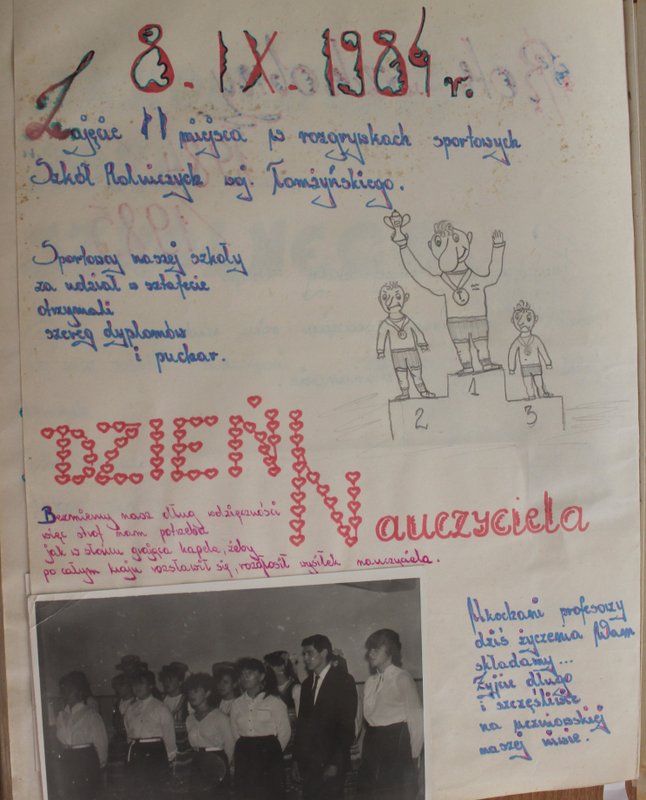 8. IX. 1984 r.
Zajęcie II miejsca w rozgrywkach sportowych
Szkół Rolniczych woj. Łomżyńskiego.
Sportowcy naszej szkoły
za udział w sztafecie
otrzymali
szereg dyplomów
i puchar.
2 1 3
DZIEŃ
Nauczyciela
Bezmierny nasz dług wdzięczności
więc strof nam potrzeba
jak w słowu grająca kapela, żeby
po całym kraju rozsławił się, rozgłosił wysiłek nauczyciela.
Ukochani profesorzy
dziś życzenia Wam
składamy...
Żyjcie długo
i szczęśliwie
na uczniowskiej
naszej niwie.